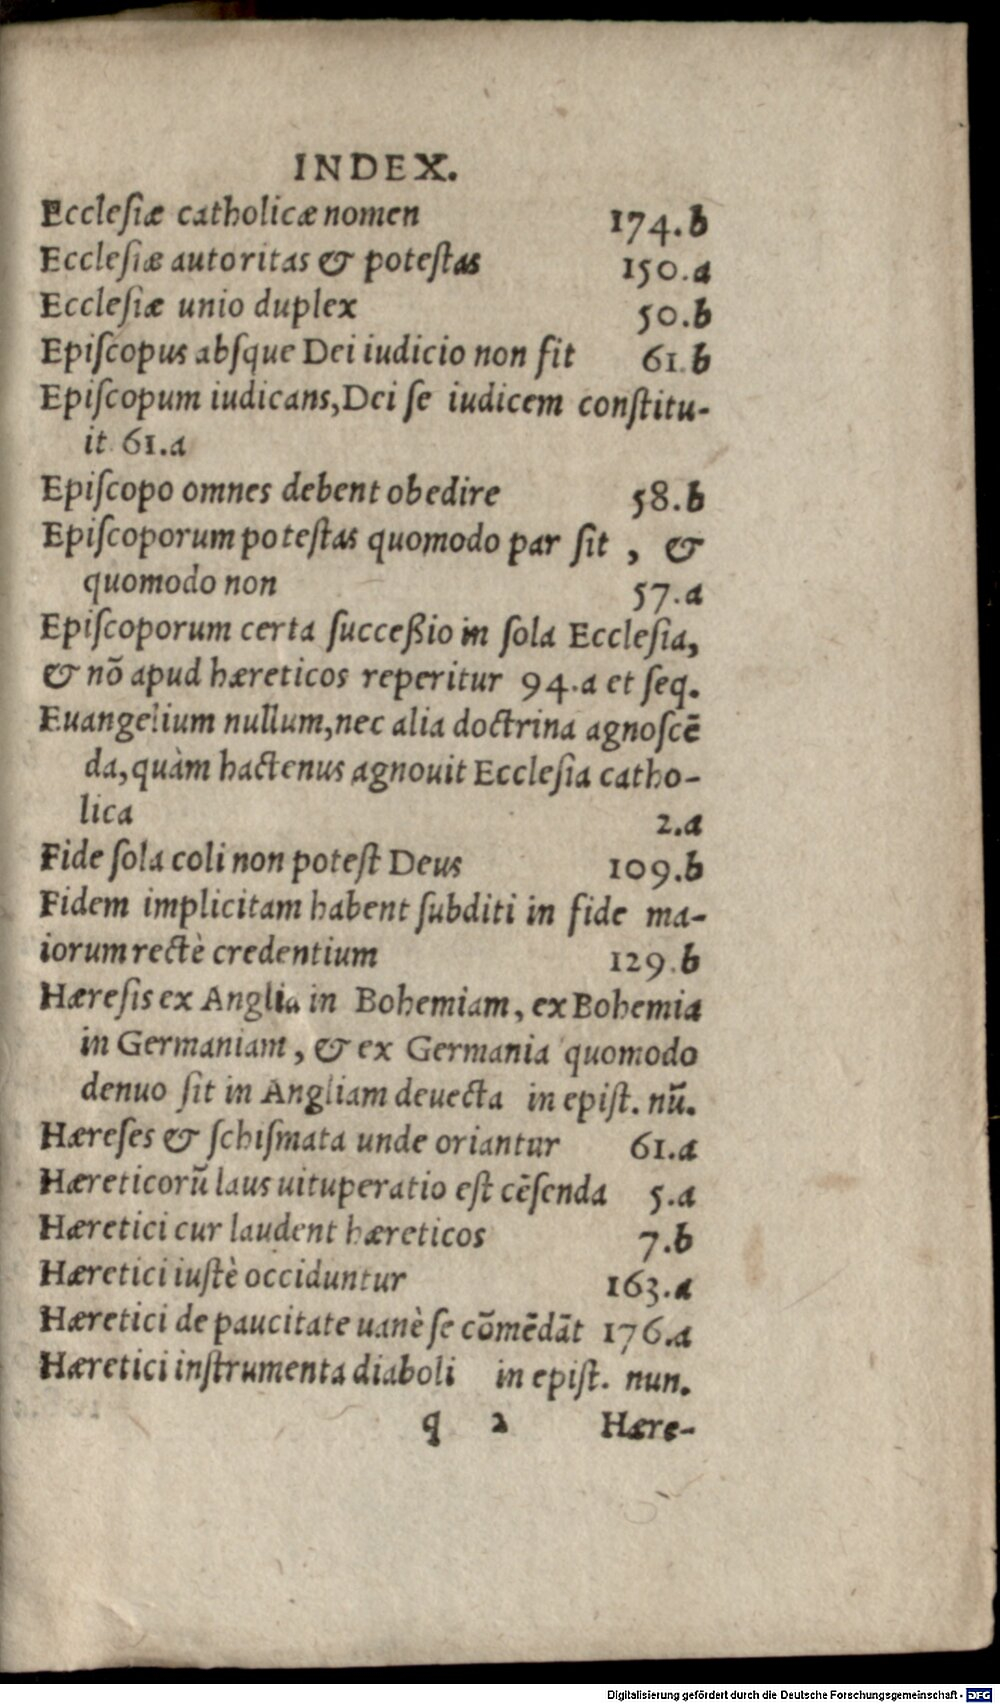 INDEX.
Eccleſiæ catholicæ nomen 174.b
Eccleſiæ autoritas & poteſtas 150.a
Eccleſiæ unio duplex 50.b
Epiſcopus abſque Dei iudicio non fit 61.b
Epiſcopum iudicans, Dei ſe iudicem conſtitu-
it 61.a
Epiſcopo omnes debent obedire 58.b
Epiſcoporum poteſtas quomodo par ſit , &
quomodo non 57.a
Epiſcoporum certa ſucceßio in ſola Eccleſia,
& nō apud hæreticos reperitur 94.a et ſeq.
Euangelium nullum, nec alia doctrina agnoſcē
da, quàm hactenus agnouit Eccleſia catho-
lica 2.a
Fide ſola coli non poteſt Deus 109.b
Fidem implicitam habent ſubditi in fide ma-
iorum rectè credentium 129.b
Hæreſis ex Anglia in Bohemiam, ex Bohemia
in Germaniam, & ex Germania quomodo
denuo ſit in Angliam deuecta in epiſt. nū.
Hæreſes & ſchiſmata unde oriantur 61.a
Hæreticorū laus uituperatio eſt cēſenda 5.a
Hæretici cur laudent hæreticos 7.b
Hæretici iuſtè occiduntur 163.a
Hæretici de paucitate uanè ſe cōmēdāt 176.a
Hæretici inſtrumenta diaboli in epiſt. nun.
q 2 Hære-
Digitalisierung gefördert durch die Deutsche Forschungsgemeinschaft - DFG